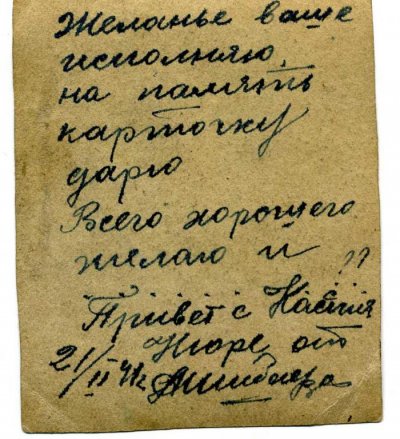 Желанье ваше
исполняю,
на память
карточку
дарю
Всего хорошего
желаю и
Привет с
Нюре от
21/II 41г.